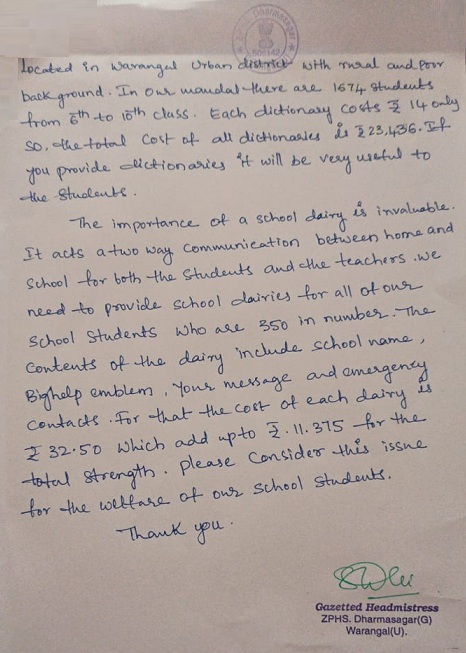 Dharmasagar
located in Warangal Urban district with rural and poor
back ground. In our mandal there are 1674 students
from 6th to 10th class. Each dictionary costs ₹ 14 only
so, the total cost of all dictionaries is ₹ 23,436. If
you provide dictionaries it will be very useful to
the students.
The importance of a school dairy is invaluable.
It acts a two way communication between home and
school for both the students and the teachers. we
need to provide school dairies for all of our
school students who are 350 in number. The
contents of the dairy include school name,
Bighelp emblem, Your message and emergency
contacts. For that the cost of each dairy is
₹ 32.50 which add upto ₹. 11.375 for the
total strength. Please consider this issue
for the welfare of our school students.
Thank you.
Gazetted Headmistress
ZPHS. Dharmasagar(G)
Warangal(U).